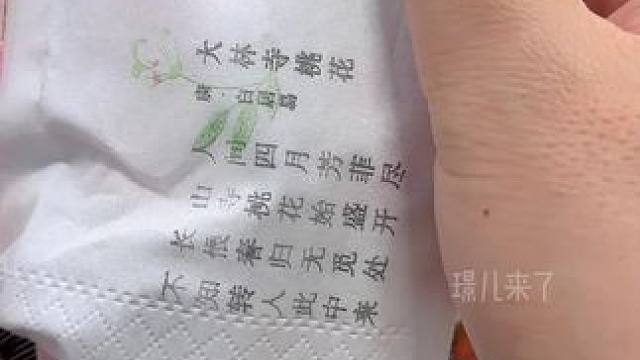 大林寺桃花
唐·白居易
人间四月芳菲尽
山寺桃花始盛开
长恨春归无觅处
不知转入此中来
璟儿来了